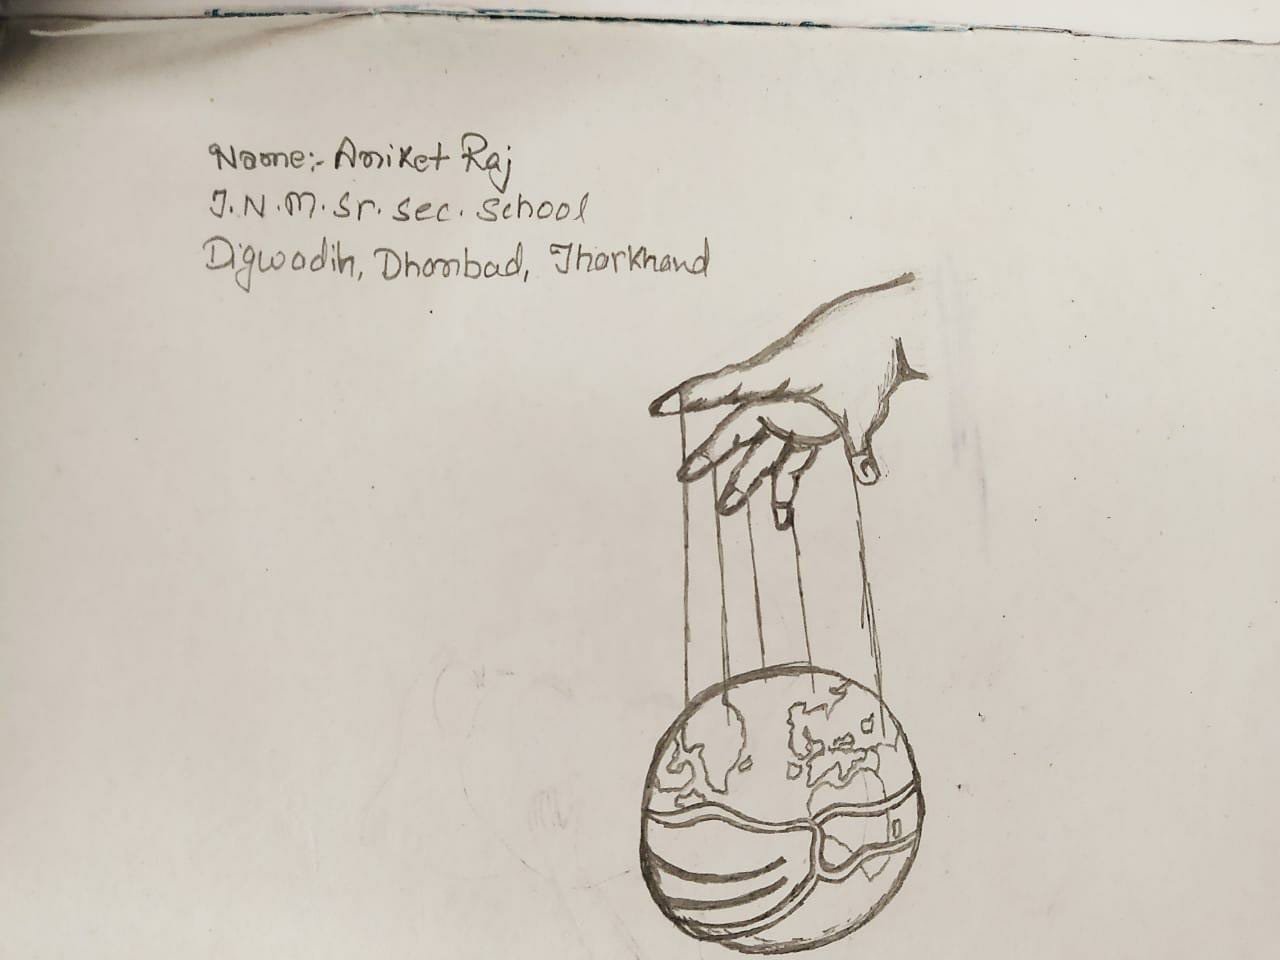 Name:- Aniket Raj
J.N.M.Sr.Sec. School
Digwadih, Dhanbad, Jharkhand